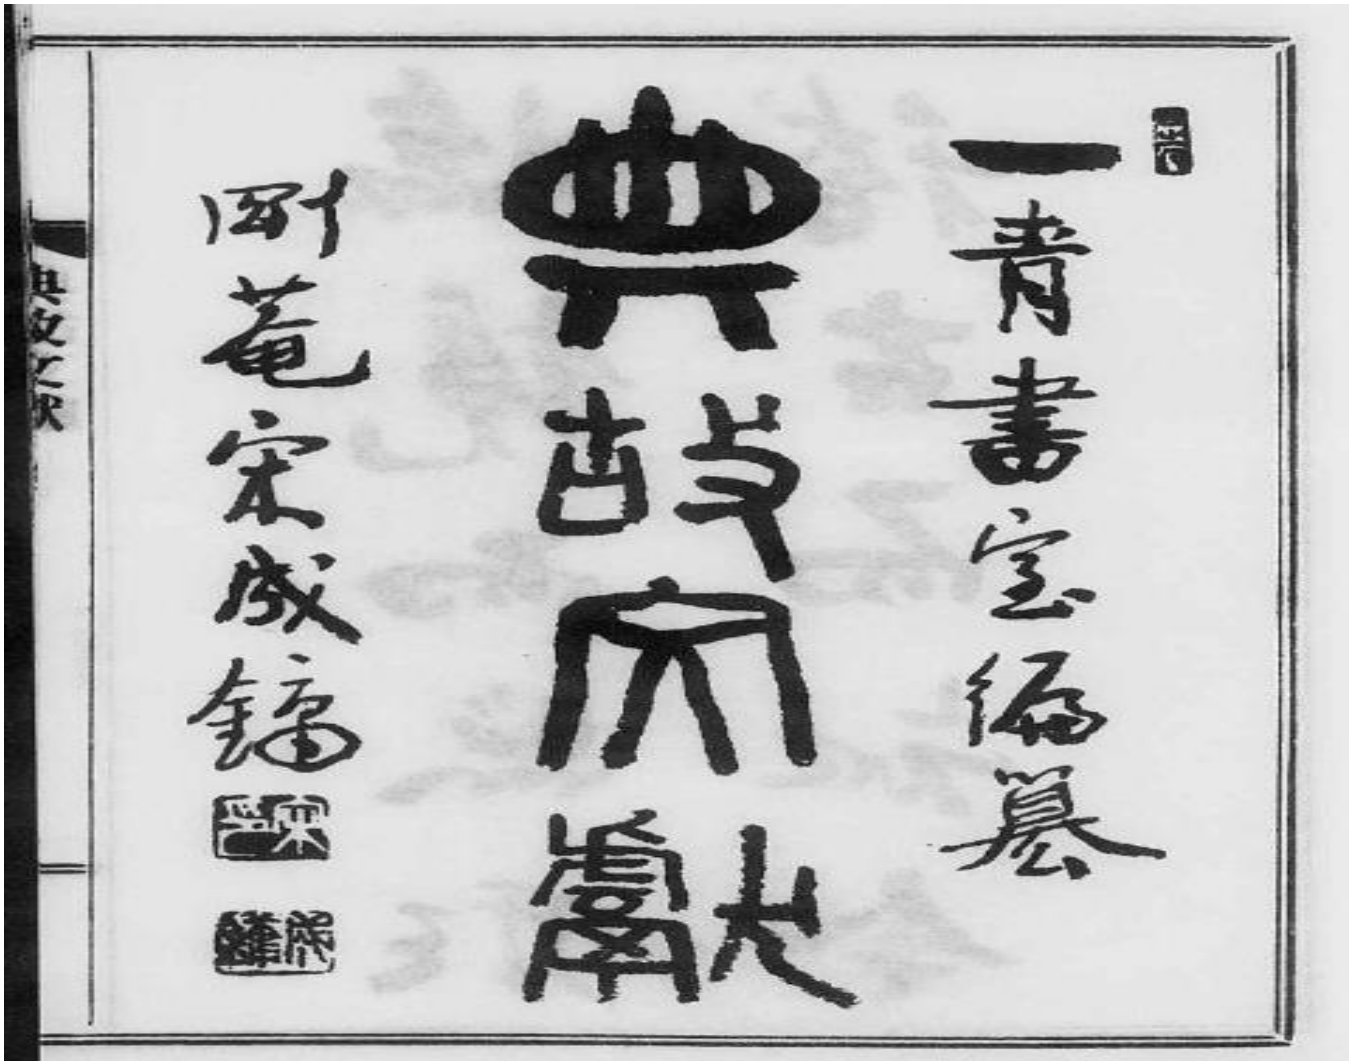 一青書室編纂
典故文獻
剛菴宋成鏞
典故文献